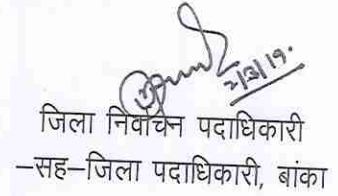 जिला निर्वाचन पदाधिकारी
–सह–जिला पदाधिकारी, बांका